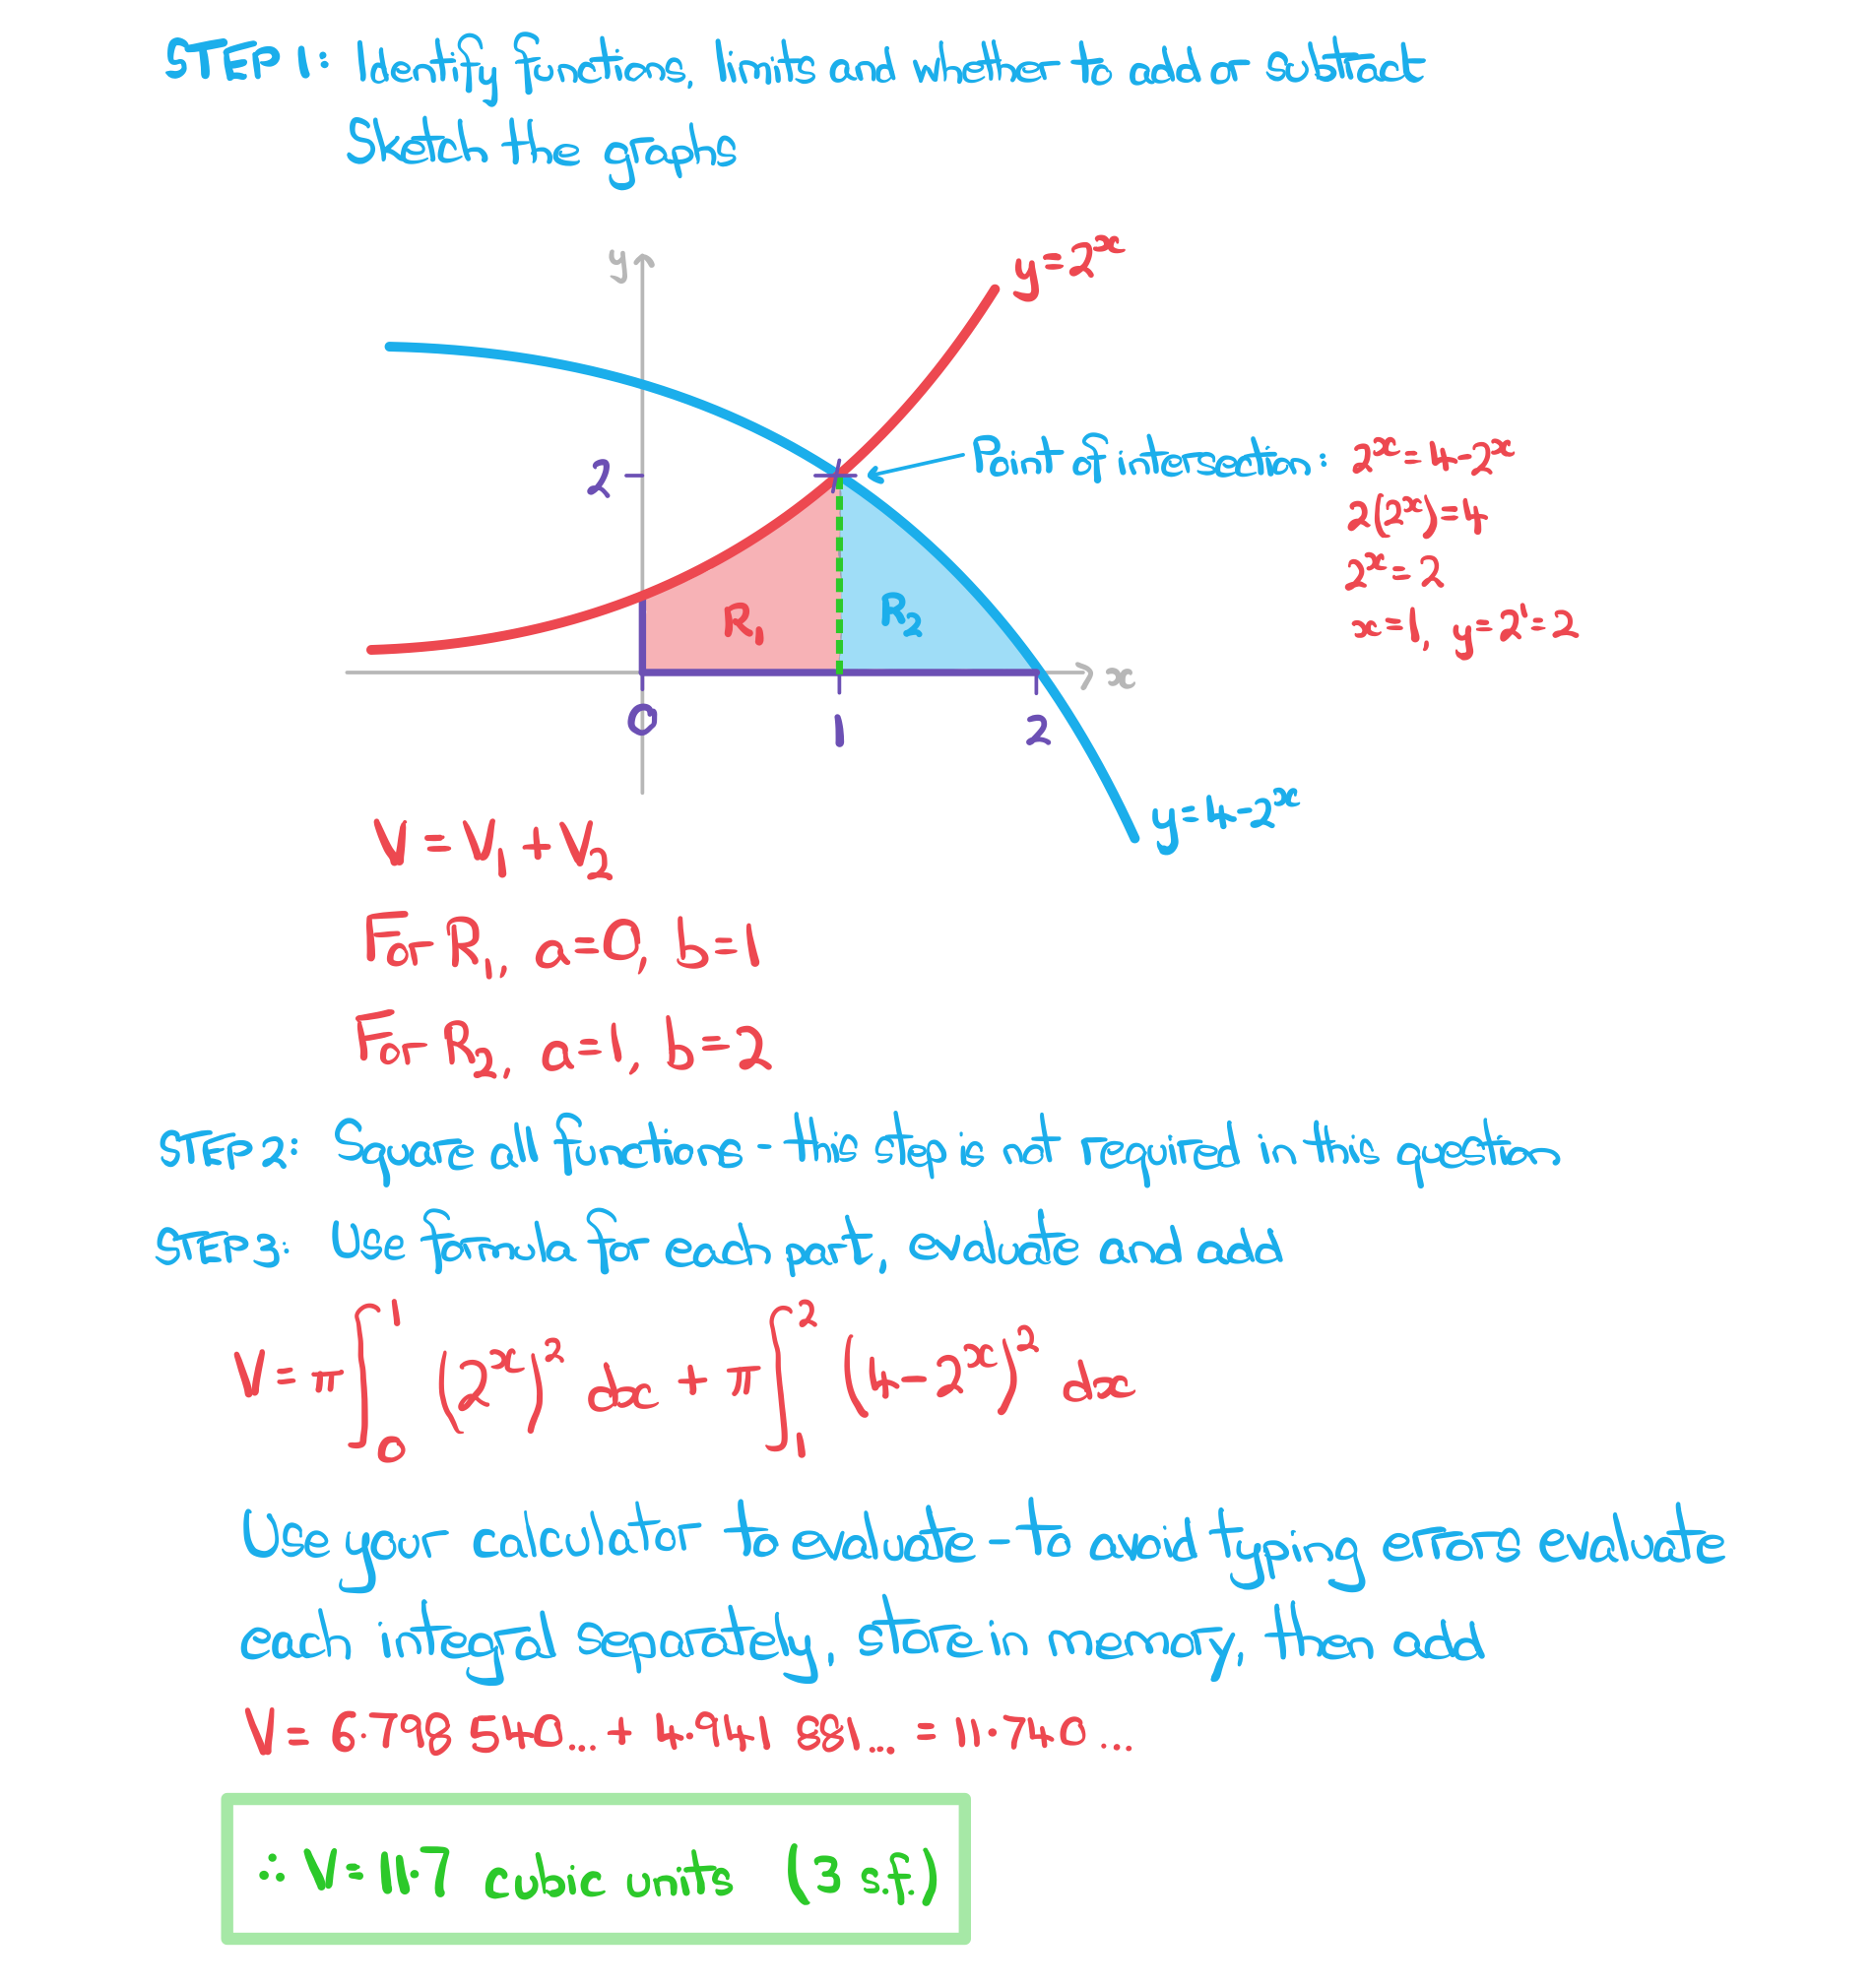 STEP 1: Identify functions, limits and whether to add or subtract
Sketch the graphs
y
y=2^x
2
Point of intersection: 2^x=4-2^x
2(2^x)=4
2^x=2
x=1, y=2^1=2
R₁
R₂
x
0
1
2
y=4-2^x
V=V₁+V₂
For R₁, a=0, b=1
For R₂, a=1, b=2
STEP 2: Square all functions - this step is not required in this question
STEP 3: Use formula for each part, evaluate and add
V=π∫₀¹ (2^x)² dx + π∫₁² (4-2^x)² dx
Use your calculator to evaluate - to avoid typing errors evaluate
each integral separately, store in memory, then add
V= 6·798 540... + 4·941 881... = 11·740...
∴ V=11·7 cubic units (3 s.f.)